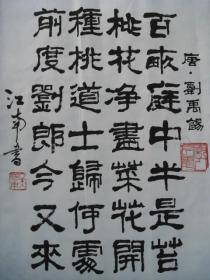 唐·劉禹錫
百畝庭中半是苔
桃花净盡菜花開
種桃道士歸何處
前度劉郎今又來
江南書